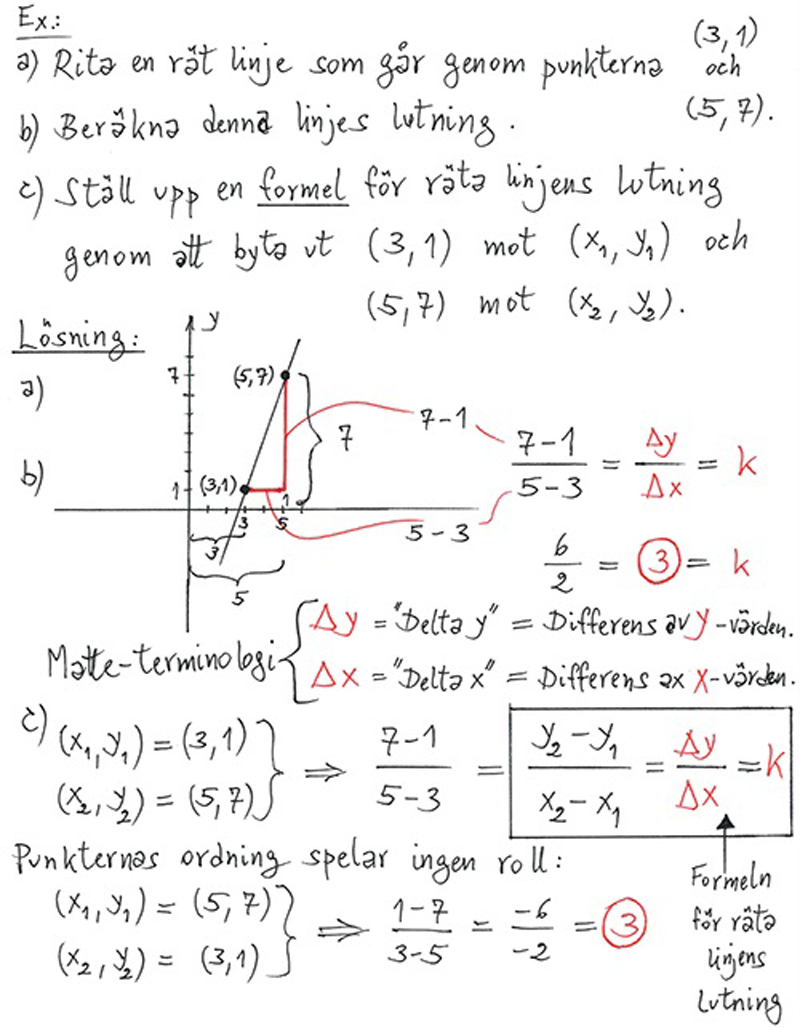 Ex.:
a) Rita en rät linje som går genom punkterna (3, 1) och (5, 7).
b) Beräkna denna linjes lutning.
c) Ställ upp en formel för räta linjens lutning
genom att byta ut (3, 1) mot (x₁, y₁) och
(5, 7) mot (x₂, y₂).
Lösning:
a)
b)
y
7
(5,7)
7
7-1
(3,1)
1
1
3
5
3
5
5-3
7-1 / 5-3 = Δy / Δx = k
6 / 2 = 3 = k
Matte-terminologi
Δy = "Delta y" = Differens av y-värden.
Δx = "Delta x" = Differens ax x-värden.
c) (x₁, y₁) = (3, 1)
(x₂, y₂) = (5, 7)
⇒ 7-1 / 5-3 = y₂-y₁ / x₂-x₁ = Δy / Δx = k
Punkternas ordning spelar ingen roll:
(x₁, y₁) = (5, 7)
(x₂, y₂) = (3, 1)
⇒ 1-7 / 3-5 = -6 / -2 = 3
Formeln
för räta
linjens
lutning